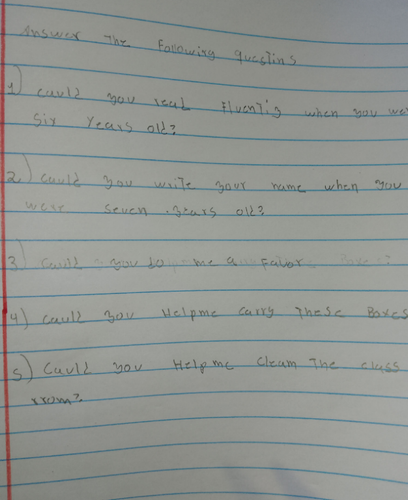 Answer The Following questins
1) Could you read Fluently when you wer
Six Years old?
2.) Could you write your name when you
wear seven years old?
3) Could you do me a favor
4) Could you Help me carry These Boxes
5) Could you Help me Clean The class
rrom?